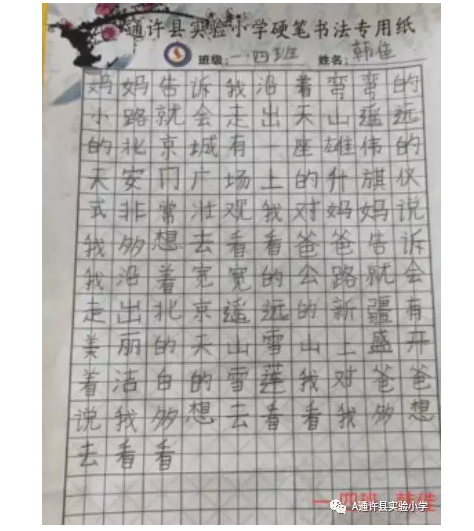 通许县实验小学硬笔书法专用纸
班级:一.四班 姓名:韩佳
妈妈告诉我沿着弯弯的
小路就会走出天山遥远
的北京城有一座雄伟的
天安门广场上的升旗仪
式非常壮观我对妈妈说
我多想去看看爸爸告诉
我沿着宽宽的公路就会
走出北京遥远的新疆有
美丽的天山雪山上盛开
着洁白的雪莲我对爸爸
说我多想去看看我多想
去看看
一四班 韩佳
A通许县实验小学